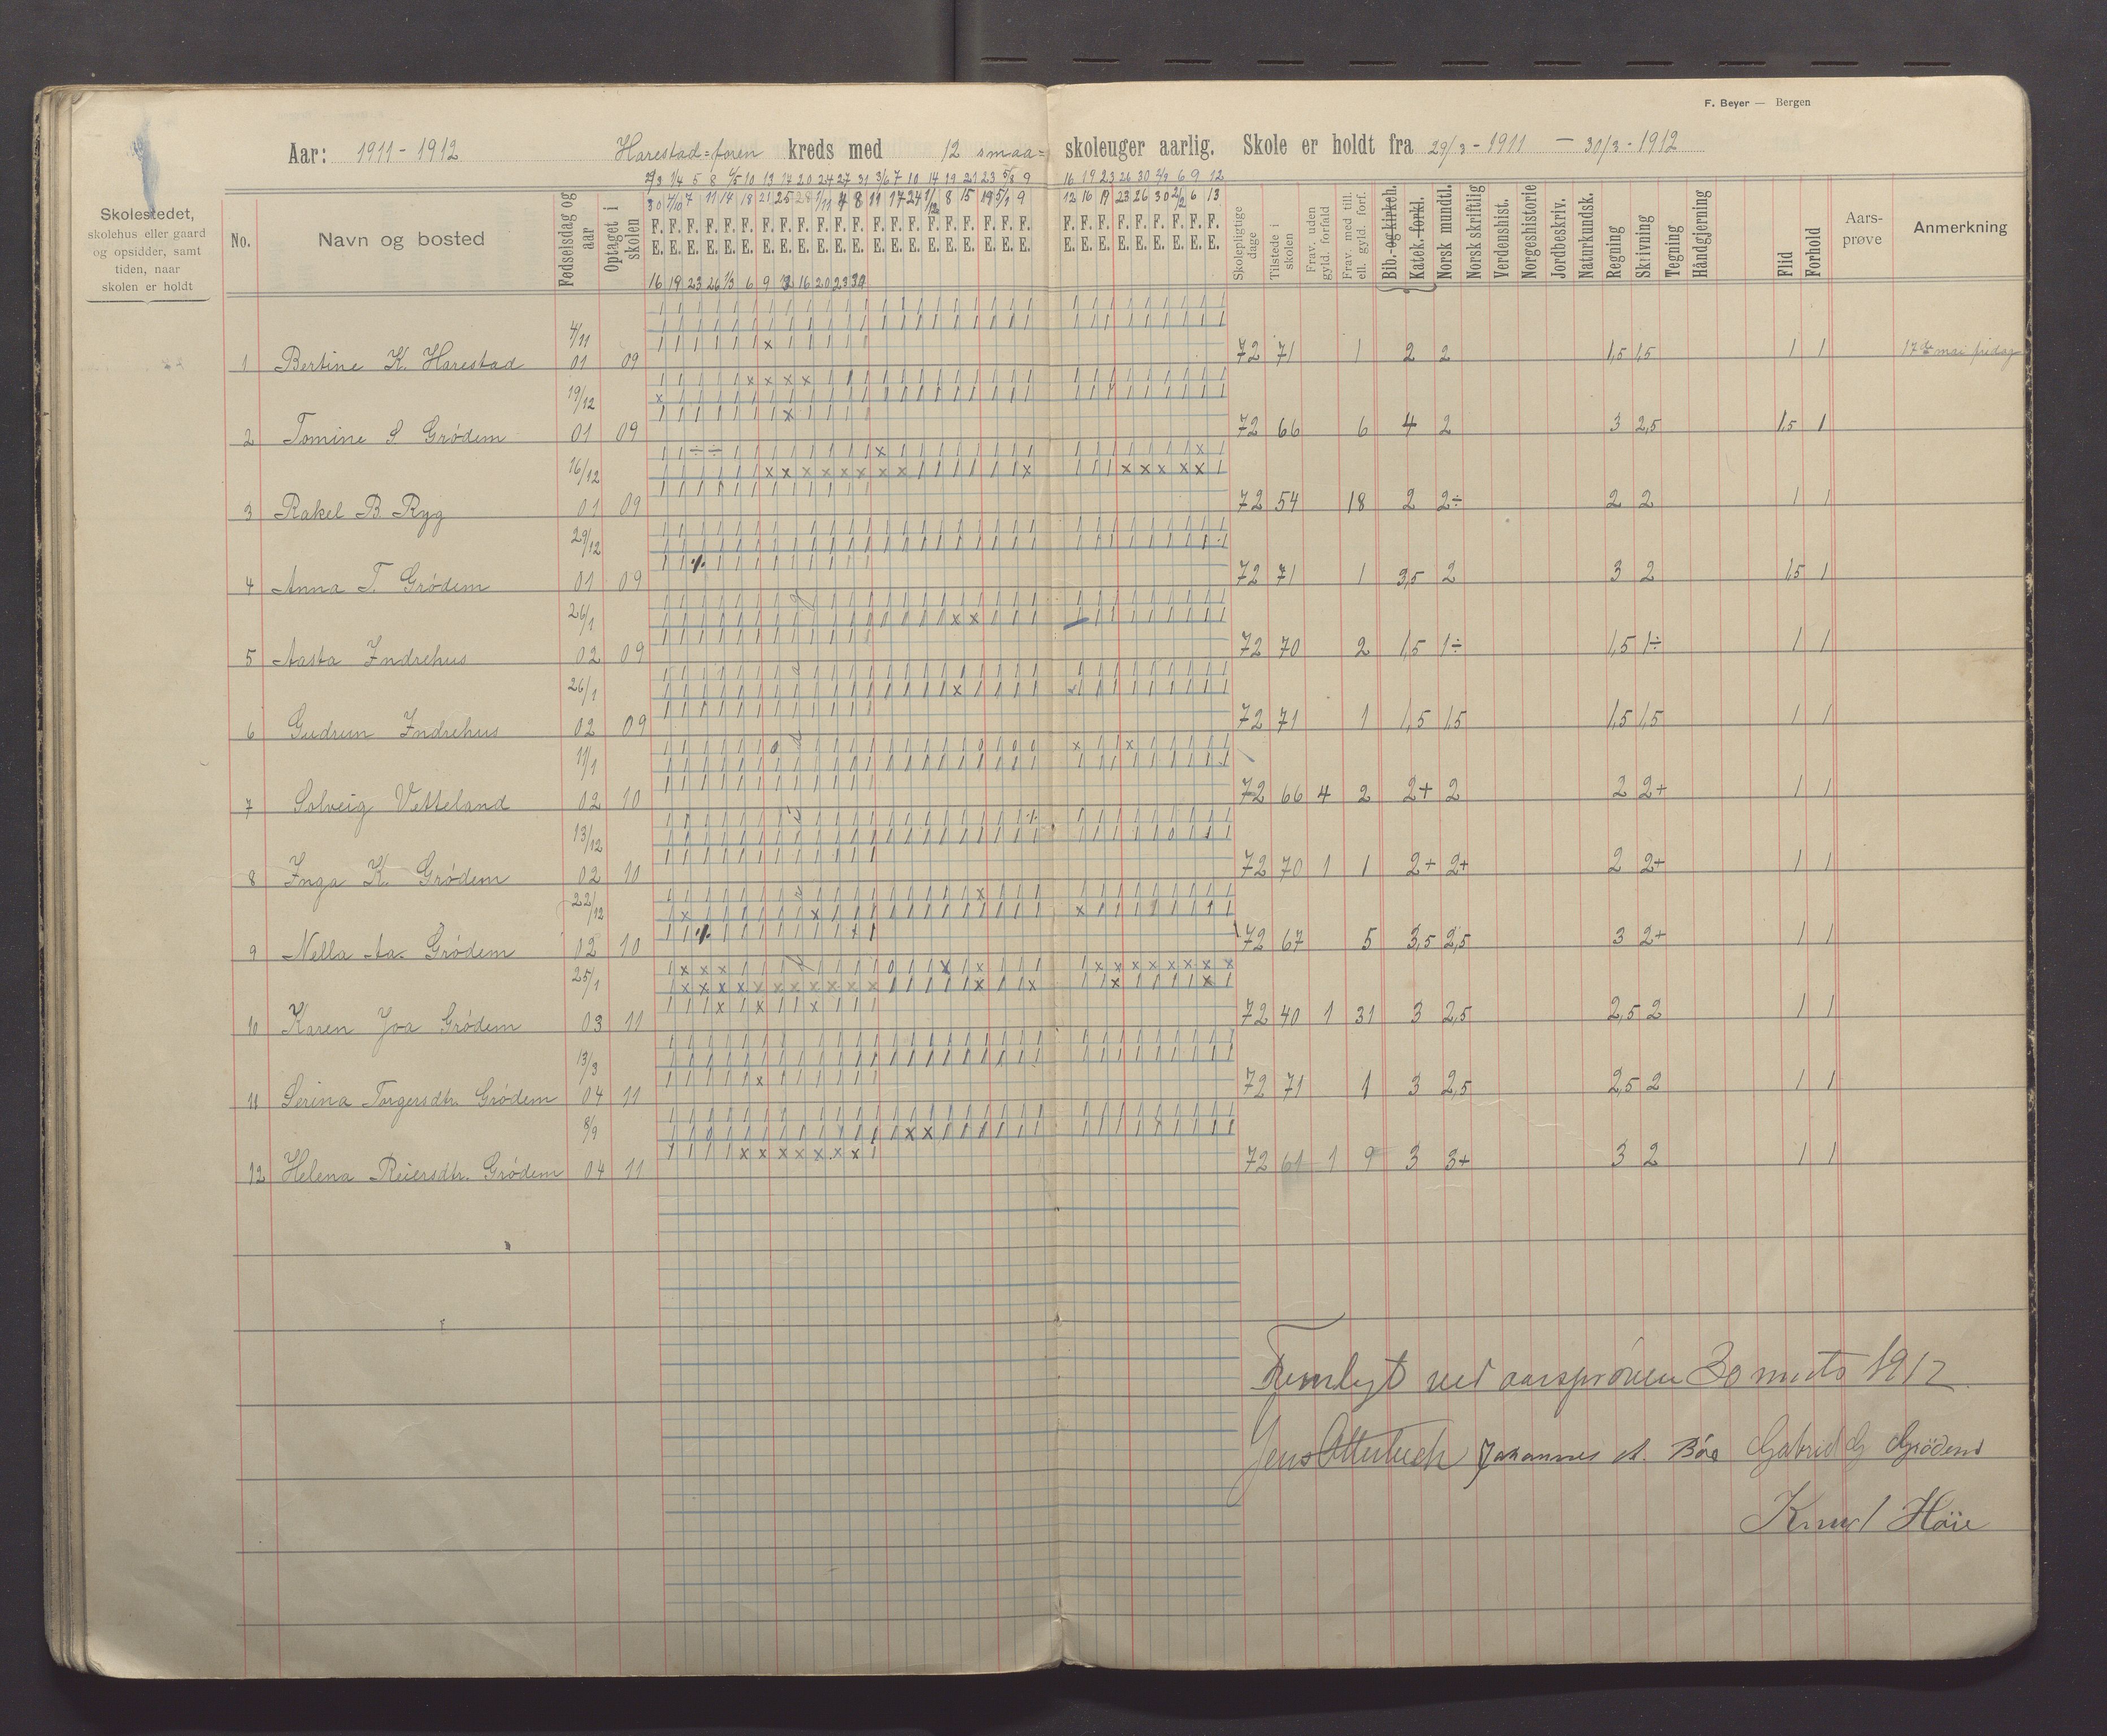 F. Beyer — Bergen
Aar: 1911-1912 Harestad=foren kreds med 12 smaa= skoleuger aarlig. Skole er holdt fra 29/3-1911 — 30/3-1912
29/3 1/4 5 8 6/5 10 13 17 20 24 27 31 3/6 7 10 14 19 21 23 5/8 9 16 19 23 26 30 2/9 6 9 12
30 4/10 7 11 14 18 21 25 28 1/11 4 8 11 17 24 1/12 8 15 19 5/1 9 12 16 19 23 26 30 2/2 6 13
Skolestedet, skolehus eller gaard og opsidder, samt tiden, naar skolen er holdt
No. Navn og bosted Fødselsdag og aar Optaget i skolen
F. F. F. F. F. F. F. F. F. F. F. F. F. F. F. F. F. F. F. F. F. F. F. F. F. F. F. F. F. F.
E. E. E. E. E. E. E. E. E. E. E. E. E. E. E. E. E. E. E. E. E. E. E. E. E. E. E. E. E. E.
Skolepligtige dage Tilstede i skolen Frav. uden gyld. forfald Frav. med till. ell. gyld. forf. Bib.- og kirkeh. Katek. forkl. Norsk mundtl. Norsk skriftlig Verdenshist. Norgeshistorie Jordbeskriv. Naturkundsk. Regning Skrivning Tegning Håndgjerning Flid Forhold Aars-prøve Anmerkning
16 19 23 26 1/3 6 9 13 16 20 23 30
1 Bertine K. Harestad 4/11 01 09 72 71 1 2 2 1,5 1,5 1 1 17de mai fridag
2 Tomine S Grödem 19/12 01 09 72 66 6 4 2 3 2,5 1,5 1
3 Rakel B. Ryg 16/12 01 09 72 54 18 2 2÷ 2 2 1 1
4 Anna T. Grödem 29/12 01 09 72 71 1 3,5 2 3 2 1,5 1
5 Aasta Indrehus 26/1 02 09 72 70 2 1,5 1÷ 1,5 1÷ 1 1
6 Gudrun Indrehus 26/1 02 09 72 71 1 1,5 1,5 1,5 1,5 1 1
7 Solveig Vetteland 11/1 02 10 72 66 4 2 2+ 2 2 2+ 1 1
8 Inga K. Grödem 13/12 02 10 72 70 1 1 2+ 2+ 2 2+ 1 1
9 Nella Aa. Grödem 22/12 02 10 72 67 5 3,5 2,5 3 2+ 1 1
10 Karen Joa Grödem 25/1 03 11 72 40 1 31 3 2,5 2,5 2 1 1
11 Serina Torgersdtr. Grödem 13/3 04 11 72 71 1 3 2,5 2,5 2 1 1
12 Helena Reiersdtr. Grödem 8/9 04 11 72 61 1 9 3 3+ 3 2 1 1
Fremlagt ved aarsprøven 30 marts 1912
Jens Otterbech Johannes A. Bøe Gabriel G Grödem
Knud Høie